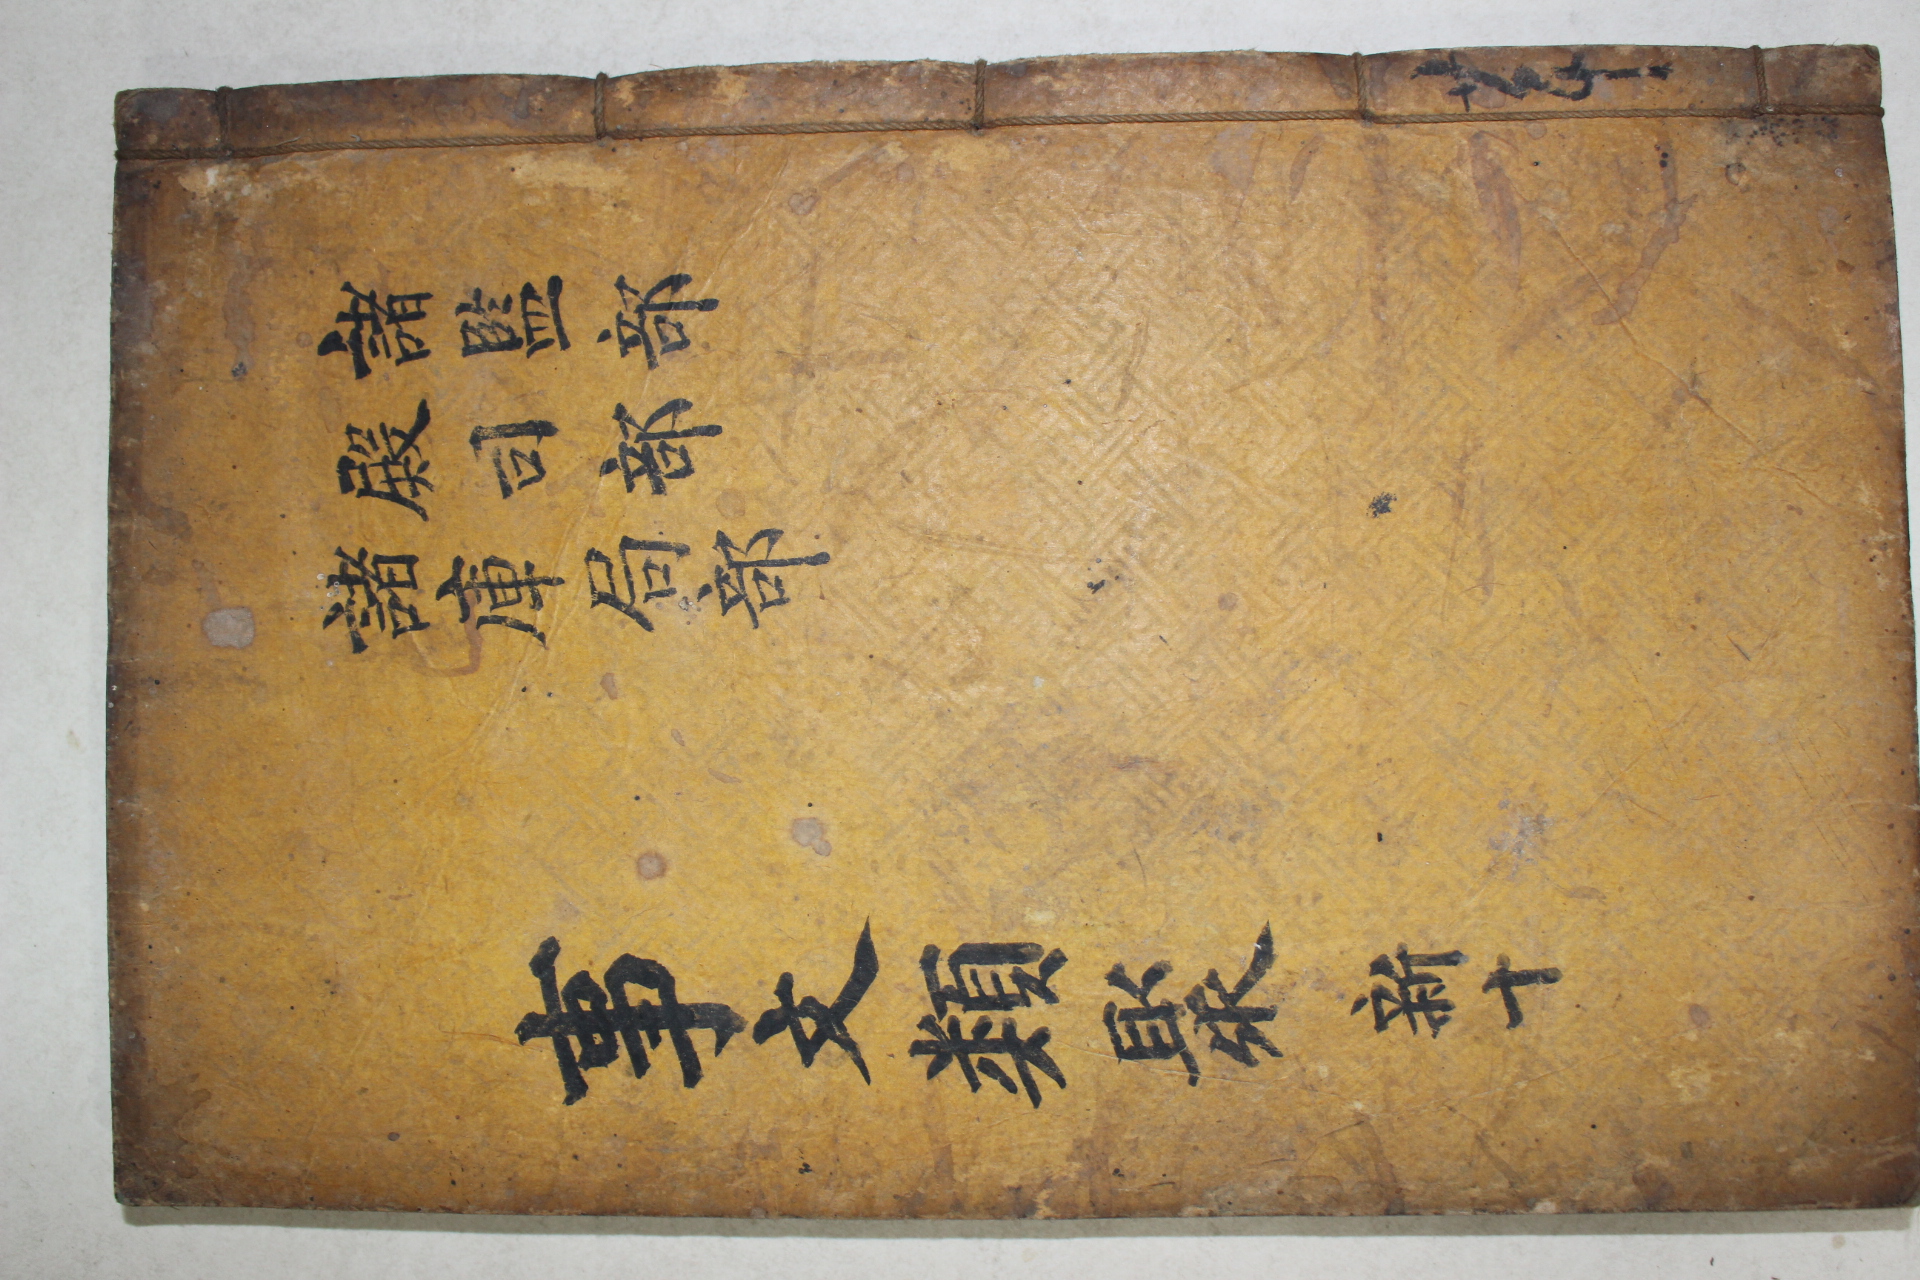 諸監部
殿司部
諸庫局部
事文類聚 新十